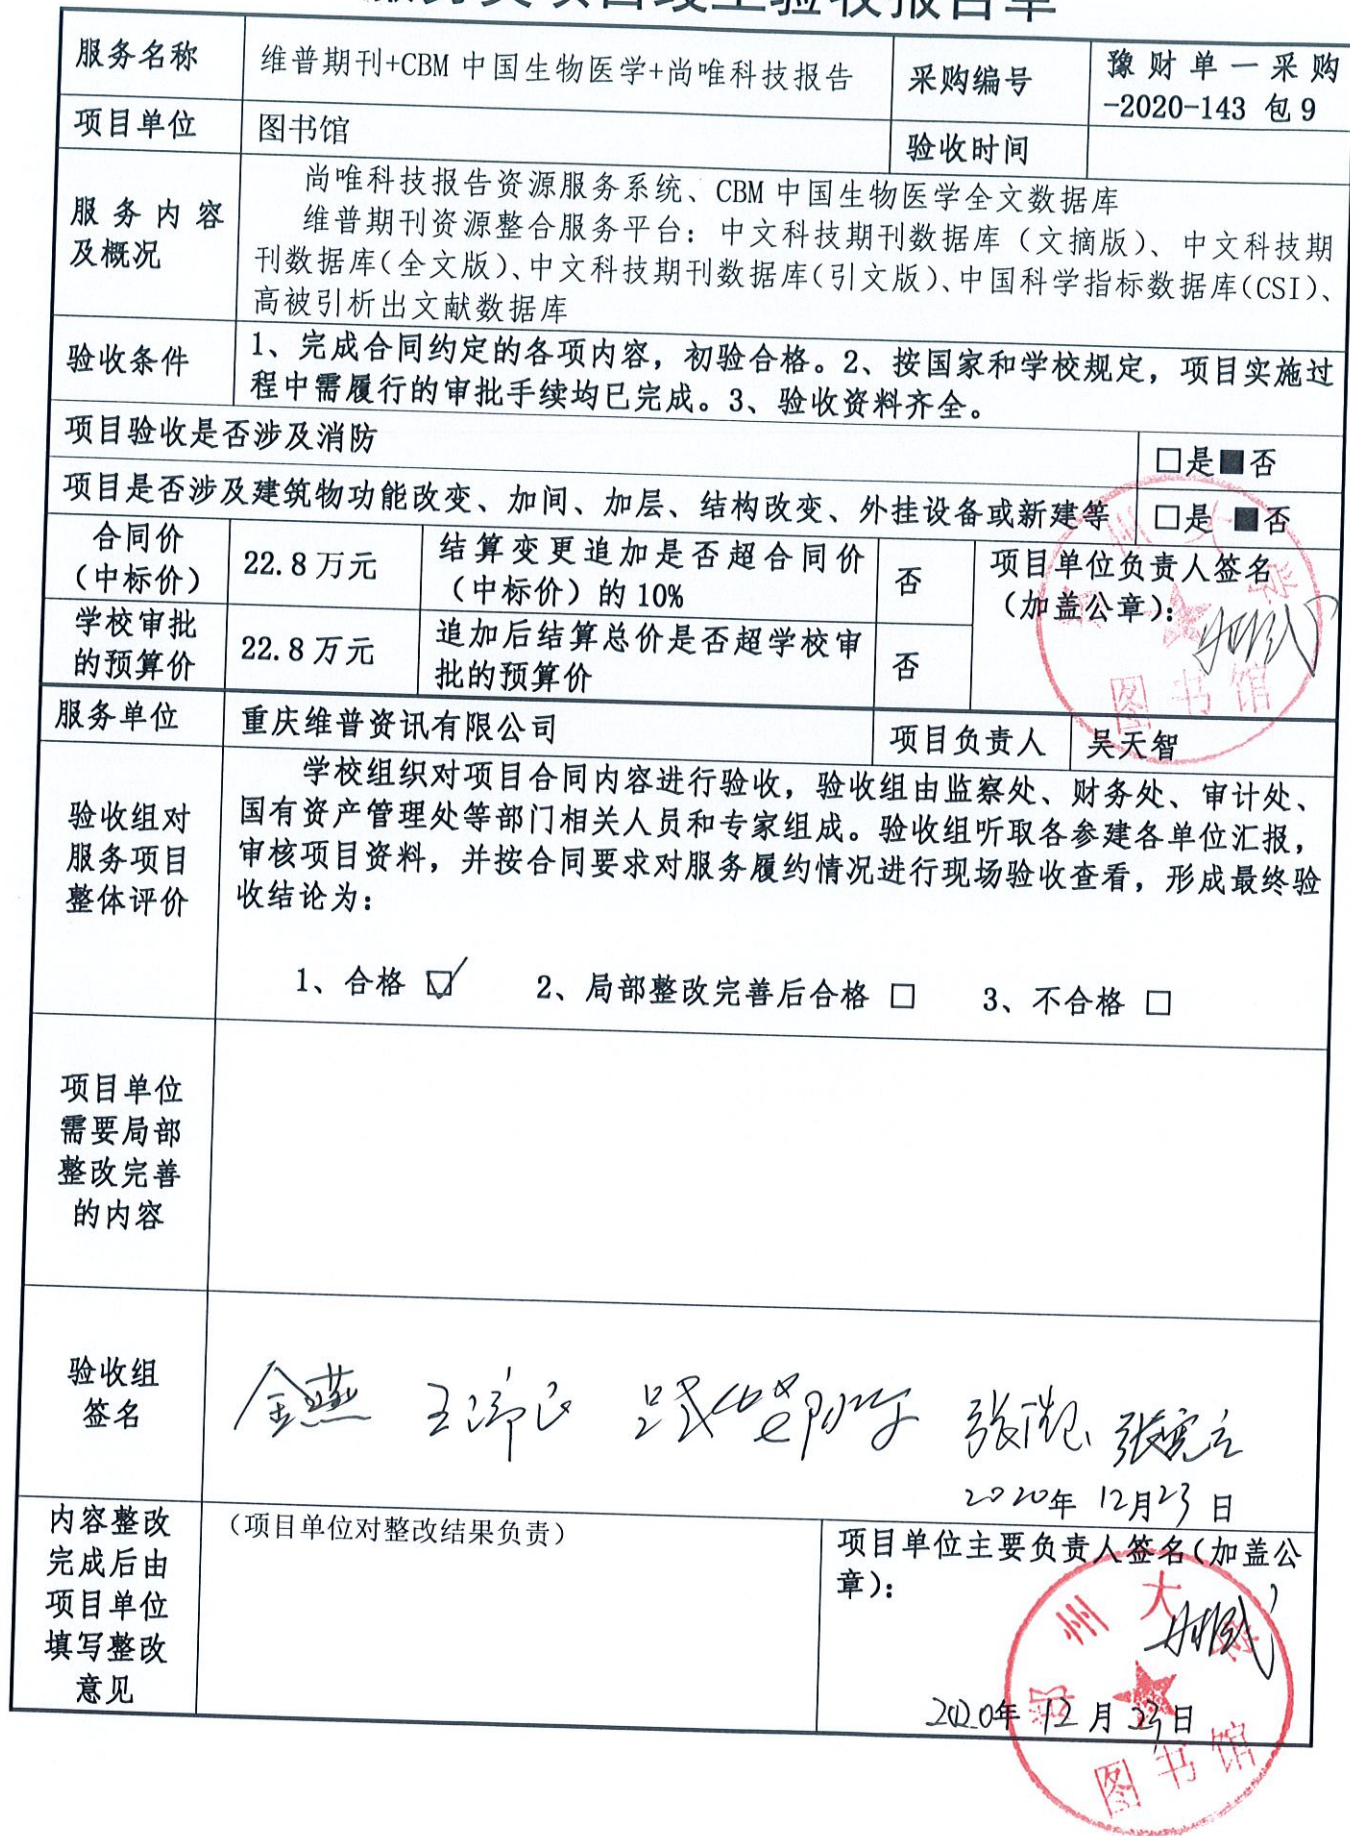 服务类项目竣工验收报告单
服务名称
维普期刊+CBM 中国生物医学+尚唯科技报告
采购编号
豫财单一采购
-2020-143 包 9
项目单位
图书馆
验收时间
服务内容
及概况
尚唯科技报告资源服务系统、CBM 中国生物医学全文数据库
维普期刊资源整合服务平台：中文科技期刊数据库（文摘版）、中文科技期
刊数据库(全文版)、中文科技期刊数据库(引文版)、中国科学指标数据库(CSI)、
高被引析出文献数据库
验收条件
1、完成合同约定的各项内容，初验合格。2、按国家和学校规定，项目实施过
程中需履行的审批手续均已完成。3、验收资料齐全。
项目验收是否涉及消防
□是■否
项目是否涉及建筑物功能改变、加间、加层、结构改变、外挂设备或新建等
□是 ■否
合同价
（中标价）
22.8 万元
结算变更追加是否超合同价
（中标价）的 10%
否
项目单位负责人签名
（加盖公章）：
学校审批
的预算价
22.8 万元
追加后结算总价是否超学校审
批的预算价
否
州大学
图书馆
服务单位
重庆维普资讯有限公司
项目负责人
吴天智
验收组对
服务项目
整体评价
学校组织对项目合同内容进行验收，验收组由监察处、财务处、审计处、
国有资产管理处等部门相关人员和专家组成。验收组听取各参建各单位汇报，
审核项目资料，并按合同要求对服务履约情况进行现场验收查看，形成最终验
收结论为：
1、合格 ☑ 2、局部整改完善后合格 □ 3、不合格 □
项目单位
需要局部
整改完善
的内容
验收组
签名
金燕
2020年 12月23日
内容整改
完成后由
项目单位
填写整改
意见
（项目单位对整改结果负责）
项目单位主要负责人签名(加盖公
章)：
郑州大学
2020年 12月 23日
图书馆